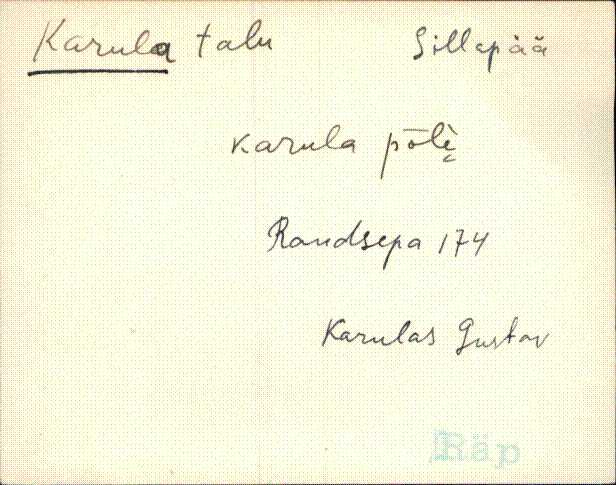 Karula talu Sillapää
Karula põlì̬
Raudsepa 174
Karulas Gustav
Räp